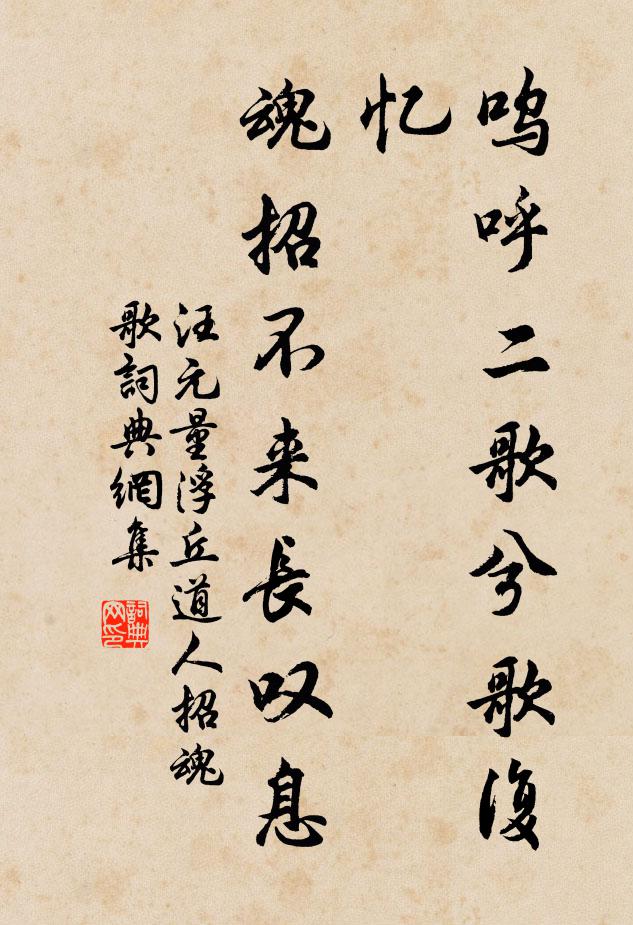 呜呼二歌兮歌復
忆
魂招不来長叹息
汪元量浮丘道人招魂
歌詞典網集
詞典
网印